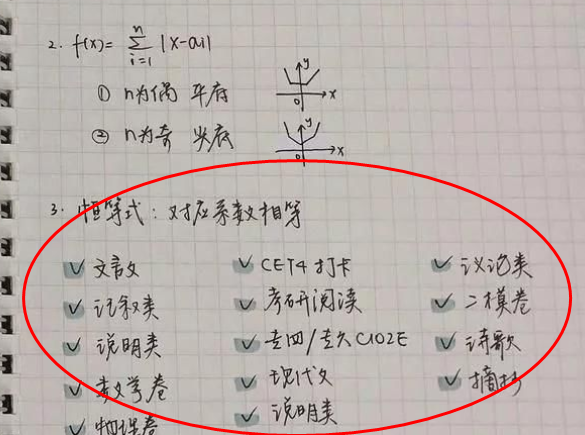 2. f(x)= n∑i=1 |x-ai|
① n为偶 平底
y
0
x
② n为奇 尖底
y
0
x
3. 恒等式: 对应系数相等
✓ 文言文 ✓ CET4打卡 ✓ 议论类
✓ 记叙类 ✓ 考研阅读 ✓ 二模卷
✓ 说明类 ✓ 专四/专八ClOZE ✓ 诗歌
✓ 数学卷 ✓ 现代文 ✓ 摘抄
✓ 物理卷 ✓ 说明类